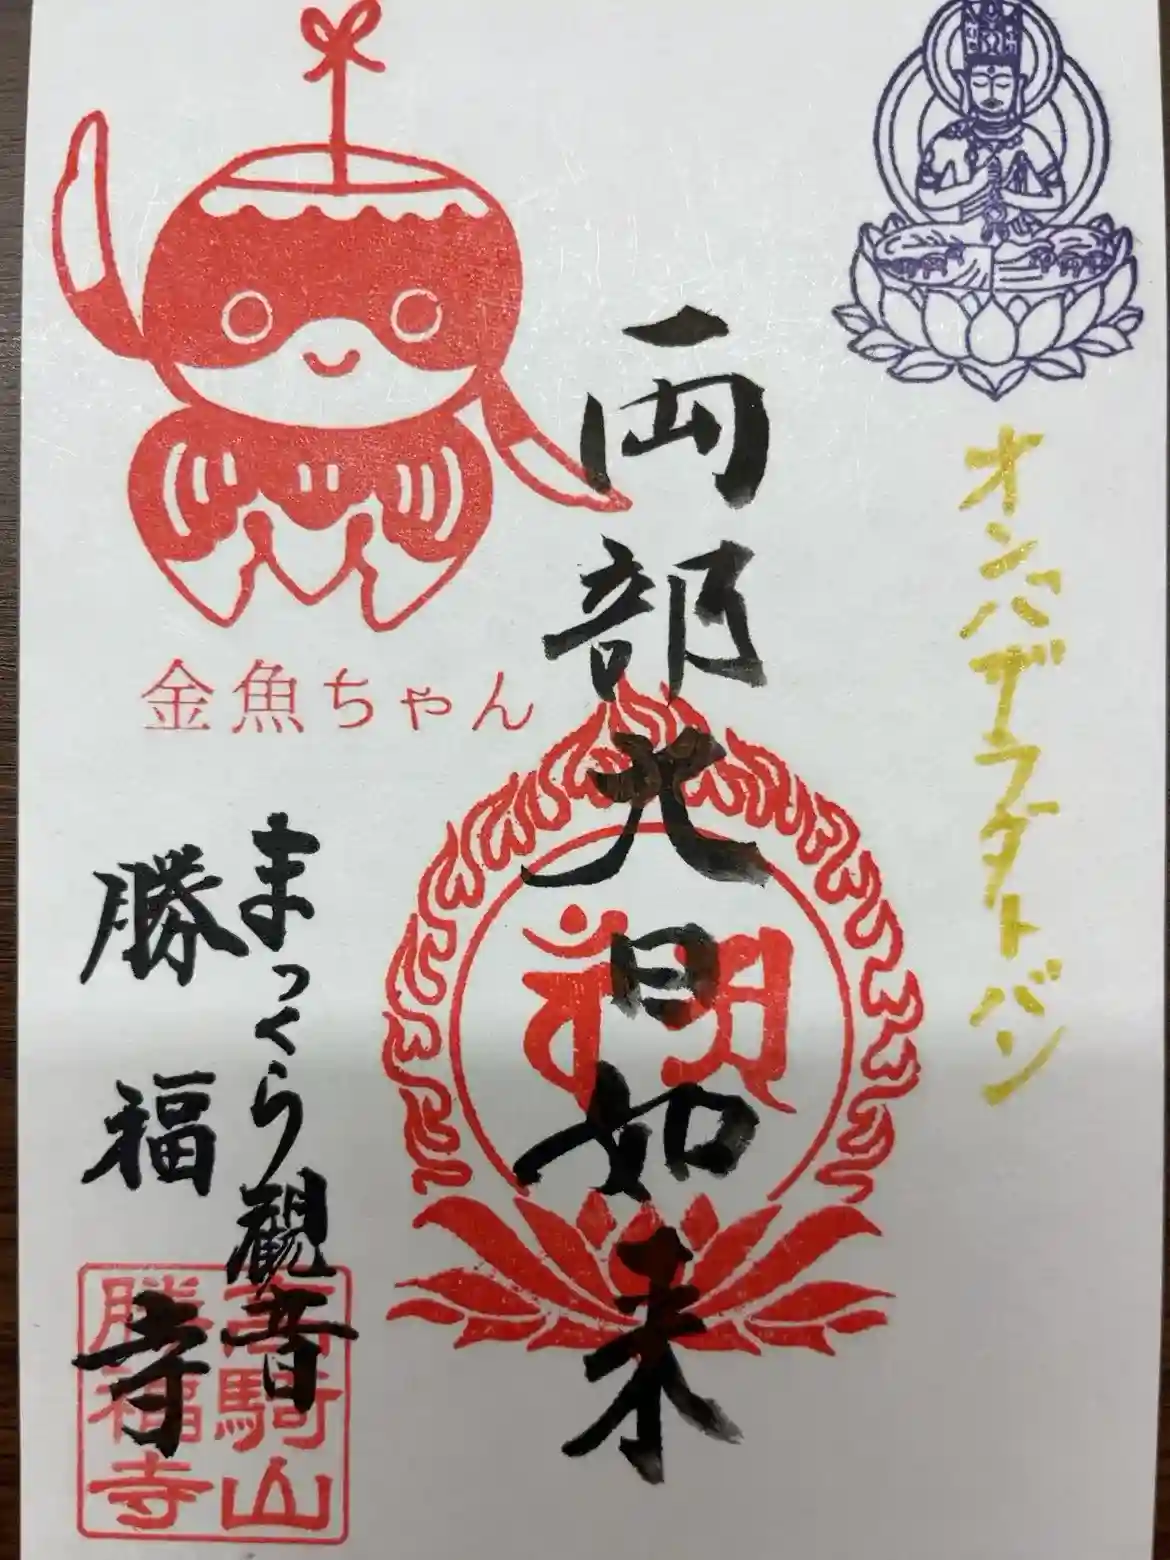 オンバザラダトバン
両部大日如来
金魚ちゃん
まっくら観音
勝福寺
萬騎山
勝福寺